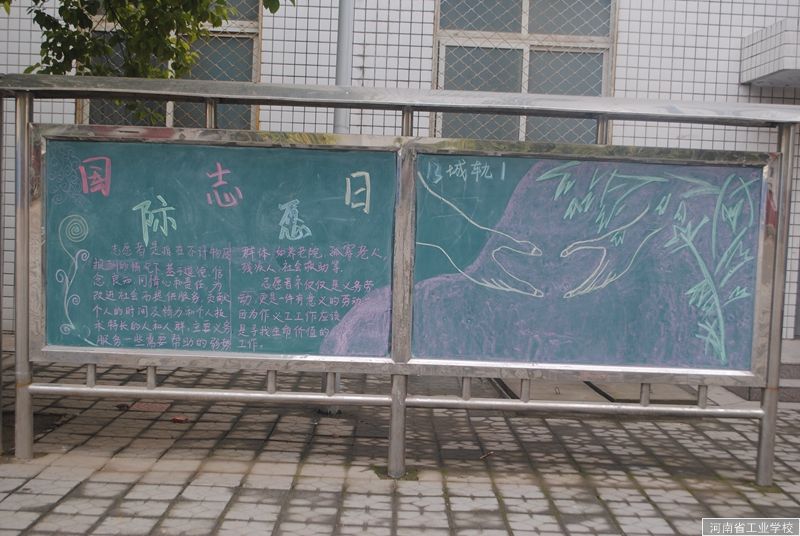 国际志愿日
志愿者是指在不计物质
报酬的情况下,基于道德,信
念,良知,同情心和责任,为
改进社会而提供服务,贡献
个人的时间及精力和个人技
术特长的人和人群,主要义务
服务一些需要帮助的弱势
群体,如养老院,孤寡老人,
残疾人,社会救助等。
志愿者不仅仅是义务劳
动,更是一件有意义的劳动,
因为作义工工作应该
是寻找生命价值的
工作。
13城轨1
河南省工业学校